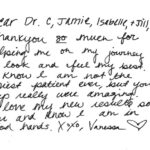 Dear Dr. C, Jamie, Isabelle, + Jill,
Thankyou so much for
helping me on my journey
to look and feel my best.
I know I am not the
easiest patient ever, but you
all really were amazing!
I love my new results so
much and know I am in
good hands. Xoxo, Vanessa ♡